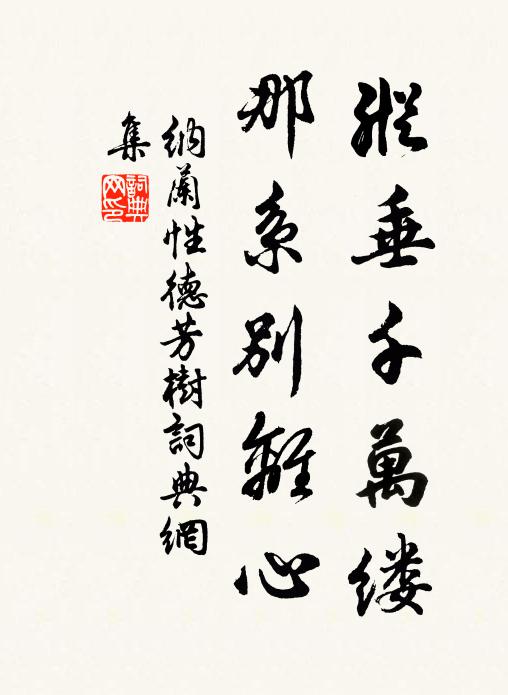 縱垂千萬缕
那系别離心
納蘭性德芳樹詞典網
集
詞典网印